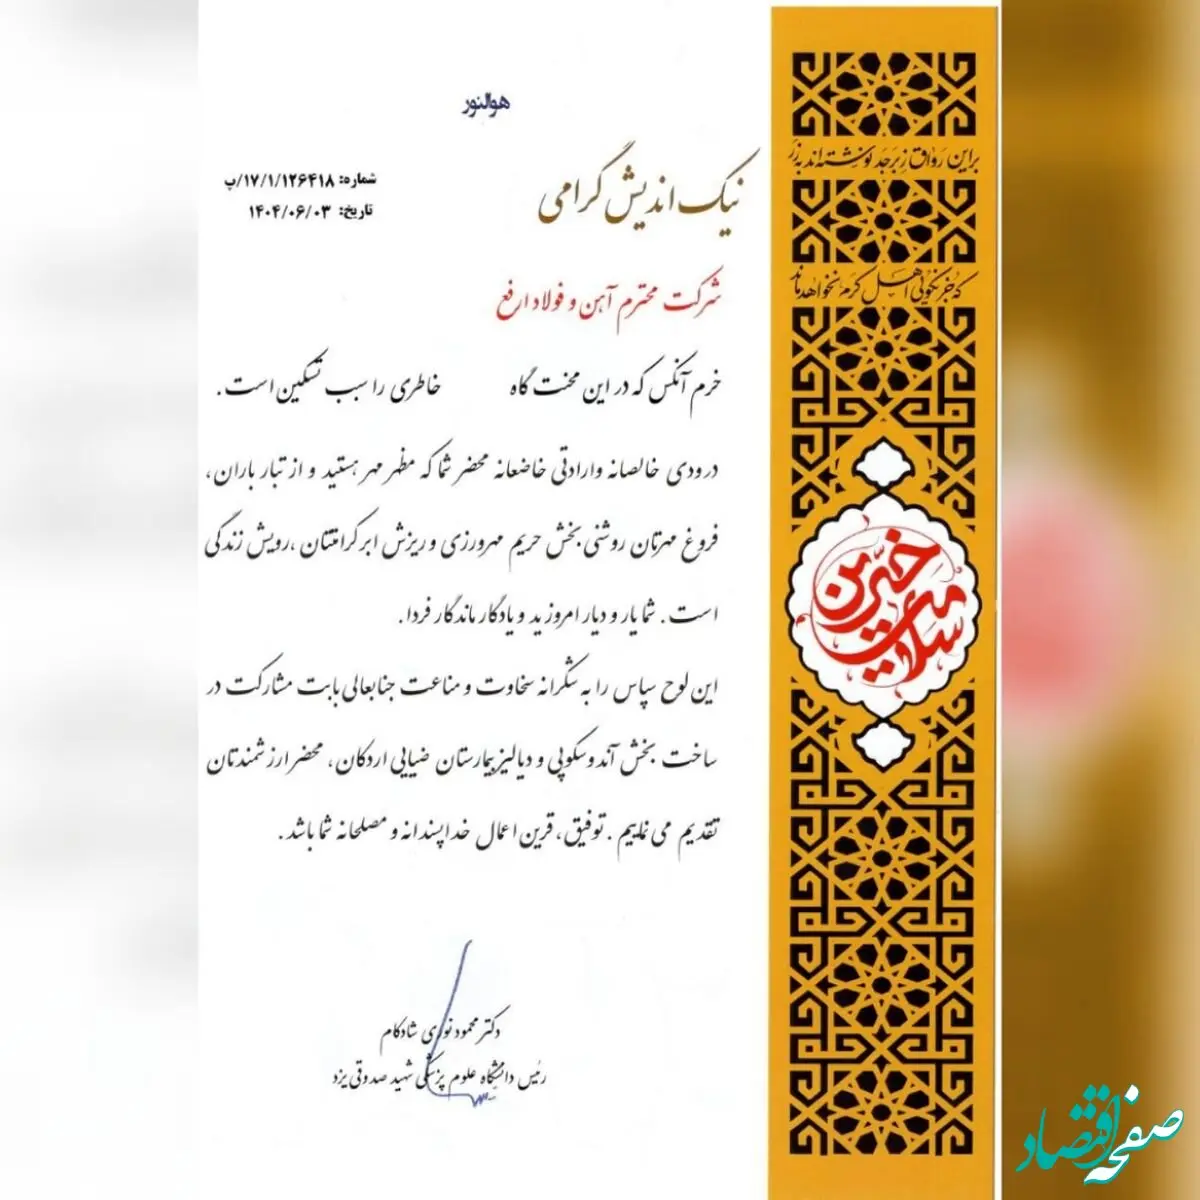 هوالنور
شماره: ۱۷/۱/۱۲۶۴۱۸/پ
تاریخ: ۱۴۰۴/۰۶/۰۳
نیک اندیش گرامی
شرکت محترم آهن و فولاد ارفع
خرم آنکس که در این محنت گاه خاطری را سبب تسکین است.
درودی خالصانه وارادتی خاضعانه محضر شما که مظهر مهر هستید و از تبار باران،
فروغ مهرتان روشنی بخش حریم مهرورزی و ریزش ابر کرامتتان، رویش زندگی
است. شما یار و دیار امروزید و یادگار ماندگار فردا.
این لوح سپاس را به شکرانه سخاوت و مناعت جنابعالی بابت مشارکت در
ساخت بخش آندوسکوپی و دیالیز بیمارستان ضیایی اردکان، محضر ارزشمندتان
تقدیم می نماییم. توفیق، قرین اعمال خداپسندانه و مصلحانه شما باشد.
دکتر محمود نوری شادکام
رئیس دانشگاه علوم پزشکی شهید صدوقی یزد
براین رواق زبرجد نوشته‌اند به زر
که جز نکویی اهل کرم نخواهد ماند
خیرین سلامت
صفحه اقتصاد